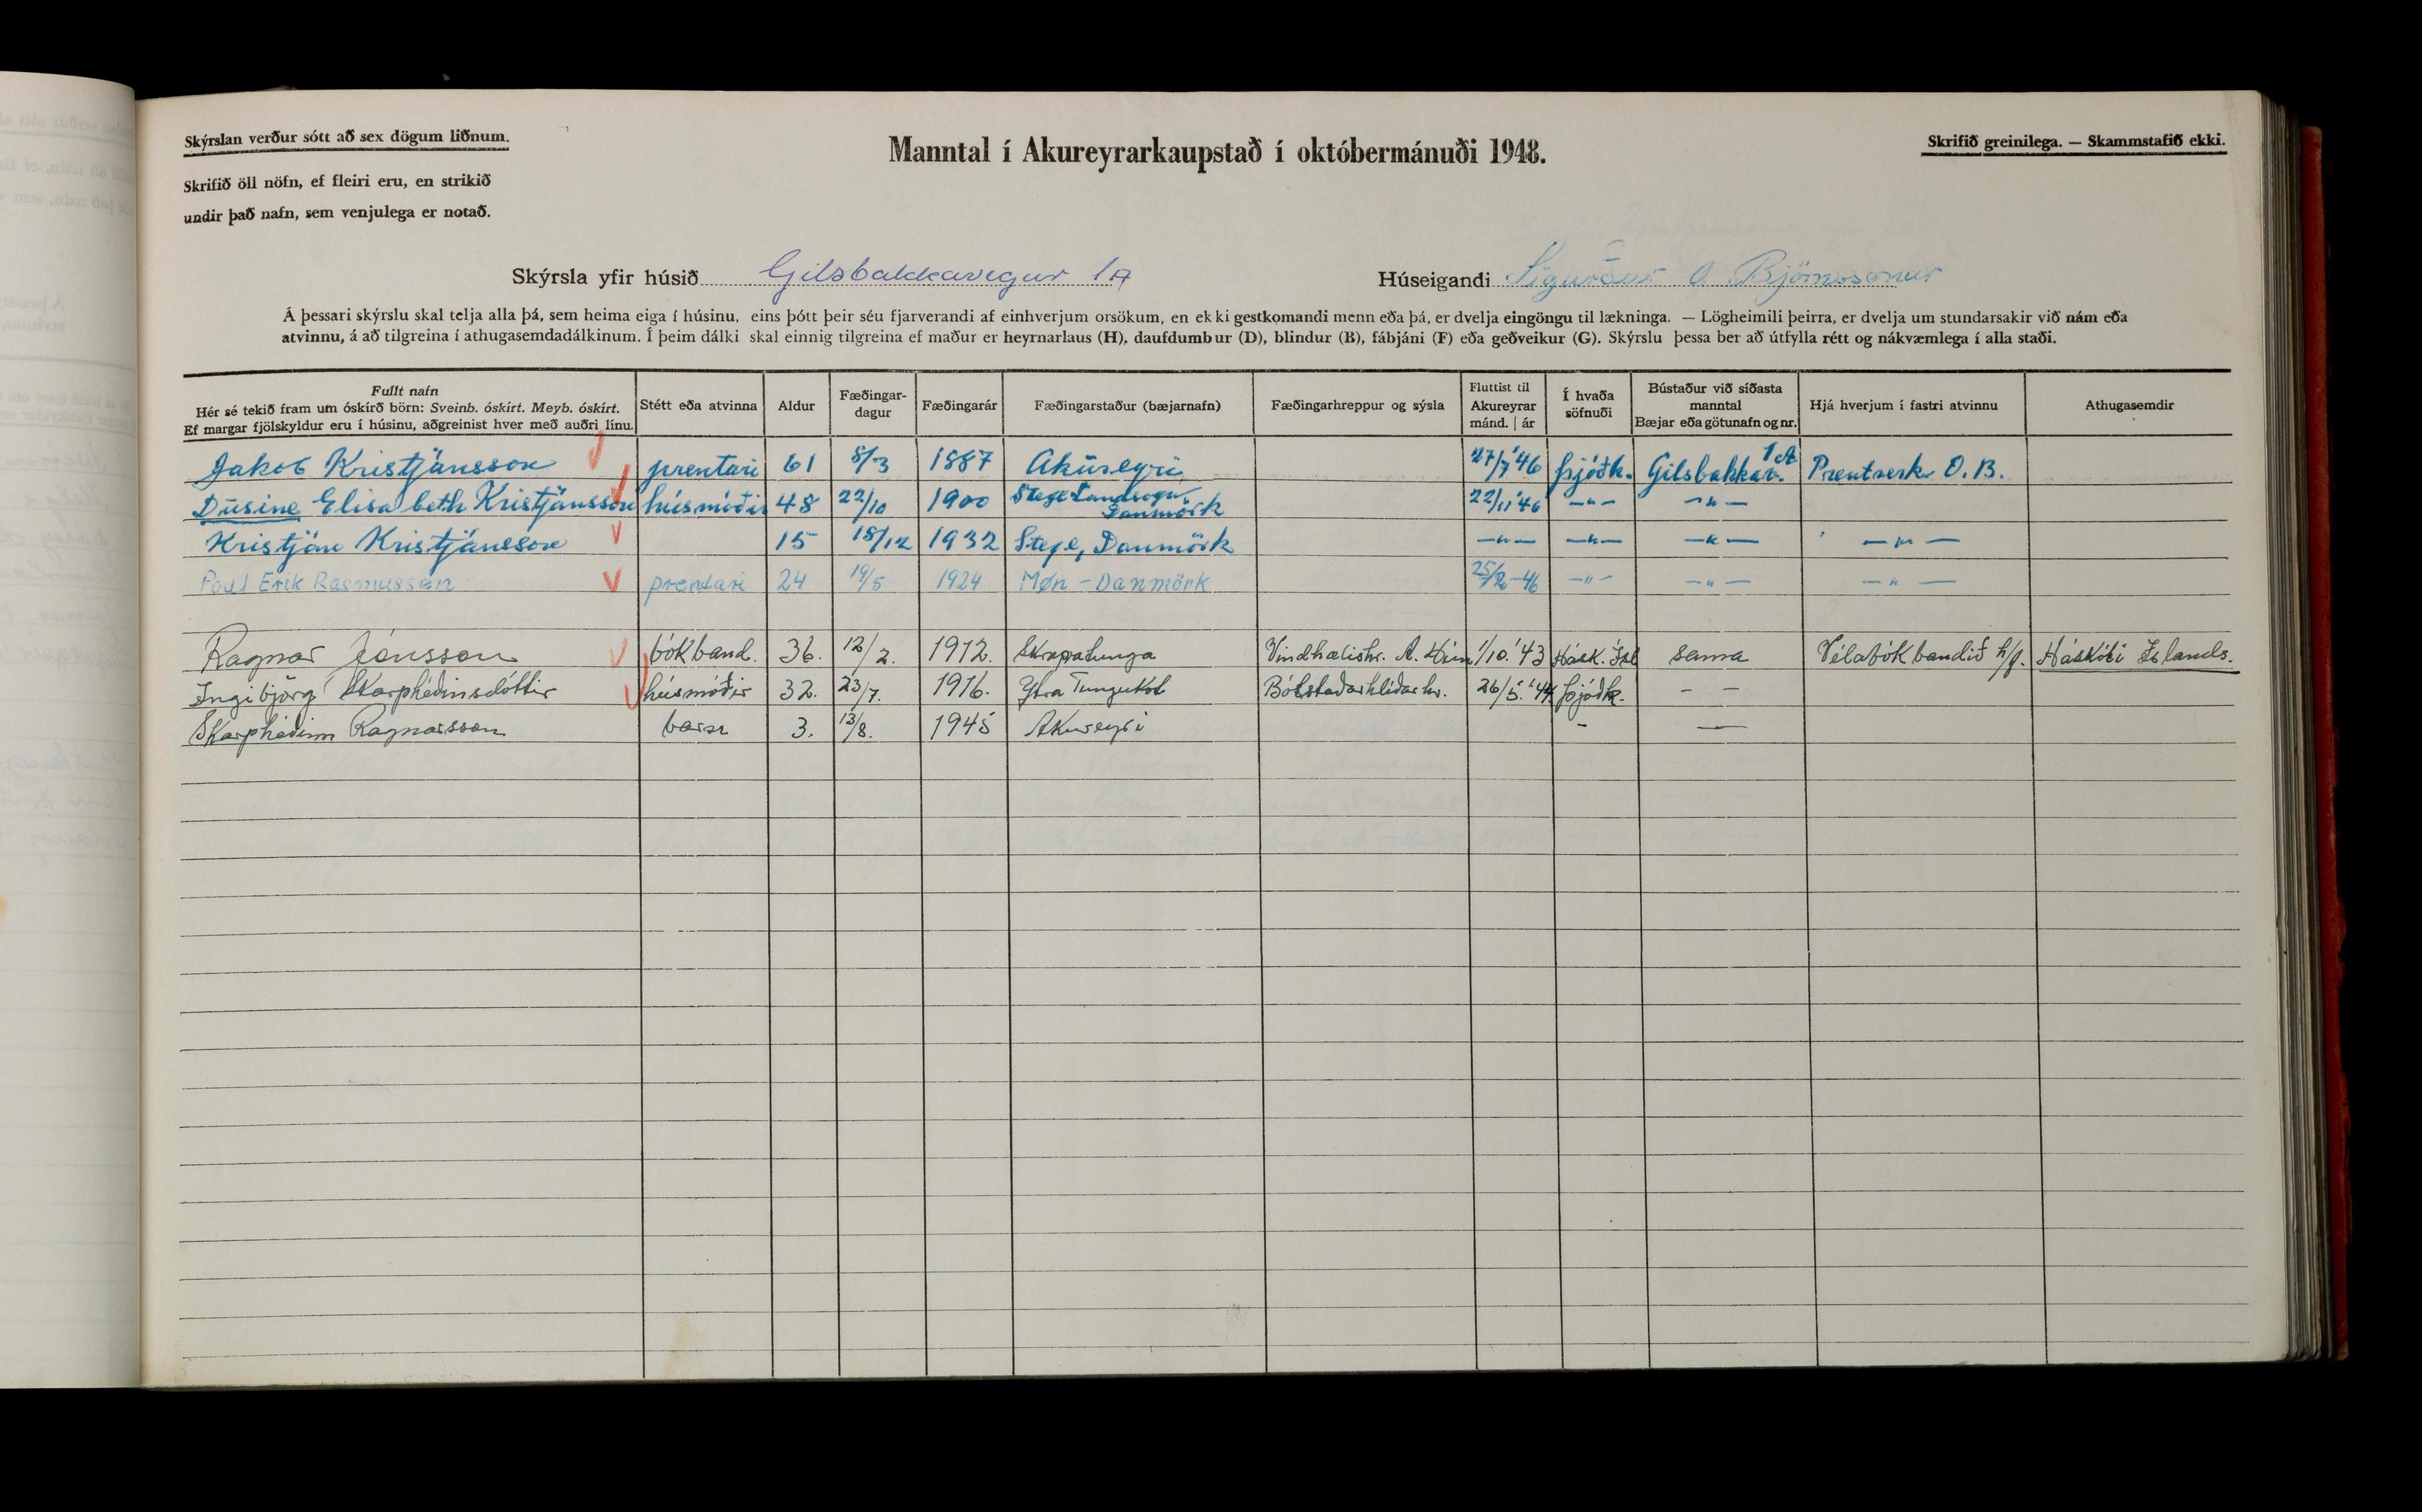 Skýrslan verður sótt að sex dögum liðnum.
Manntal í Akureyrarkaupstað í októbermánuði 1948.
Skrifið greinilega. — Skammstafið ekki.
Skrifið öll nöfn, ef fleiri eru, en strikið
undir það nafn, sem venjulega er notað.
Skýrsla yfir húsið Gilsbakkavegur 1A Húseigandi Sigurður O Björnssonur
Á þessari skýrslu skal telja alla þá, sem heima eiga í húsinu, eins þótt þeir séu fjarverandi af einhverjum orsökum, en ekki gestkomandi menn eða þá, er dvelja eingöngu til lækninga. — Lögheimili þeirra, er dvelja um stundarsakir við nám eða
atvinnu, á að tilgreina í athugasemdadálkinum. Í þeim dálki skal einnig tilgreina ef maður er heyrnarlaus (H), daufdumbur (D), blindur (B), fábjáni (F) eða geðveikur (G). Skýrslu þessa ber að útfylla rétt og nákvæmlega í alla staði.
Fullt nafn
Hér sé tekið fram um óskírð börn: Sveinb. óskírt. Meyb. óskírt.
Ef margar fjölskyldur eru í húsinu, aðgreinist hver með auðri línu.
Stétt eða atvinna
Aldur
Fæðingar-
dagur
Fæðingarár
Fæðingarstaður (bæjarnafn)
Fæðingarhreppur og sýsla
Fluttist til
Akureyrar
mánd. | ár
Í hvaða
söfnuði
Bústaður við síðasta
manntal
Bæjar eða götunafn og nr.
Hjá hverjum í fastri atvinnu
Athugasemdir
Jakob Kristjánsson prentari 61 8/3 1887 Akureyri 27/7 '46 þjóðk. Gilsbakkav. 1A Prentverk O. B.
Dúsine Elisabeth Kristjánsson húsmóðir 48 22/10 1900 Stege Landsogn, Danmörk 22/11 '46 —"— —"—
Kristján Kristjánsson 15 18/12 1932 Stege, Danmörk —"— —"— —"— —"—
Poul Erik Rasmussen prentari 24 19/5 1924 Møn - Danmörk 25/2-46 —"— —"— —"—
Ragnar Jónsson bókband. 36. 12/2. 1912. Skrapatunga Vindhælishr. A. Hún 1/10.'43 Hásk. Ísl sama Vélabókbandið h/f. Háskóli Íslands.
Ingibjörg Skarphéðinsdóttir húsmóðir 32. 23/7. 1916. Ytra Tungukot Bólstaðarhlíðarhr. 26/5.'44 þjóðk. — —
Skarphéðinn Ragnarsson barn 3. 13/8. 1945 Akureyri - —